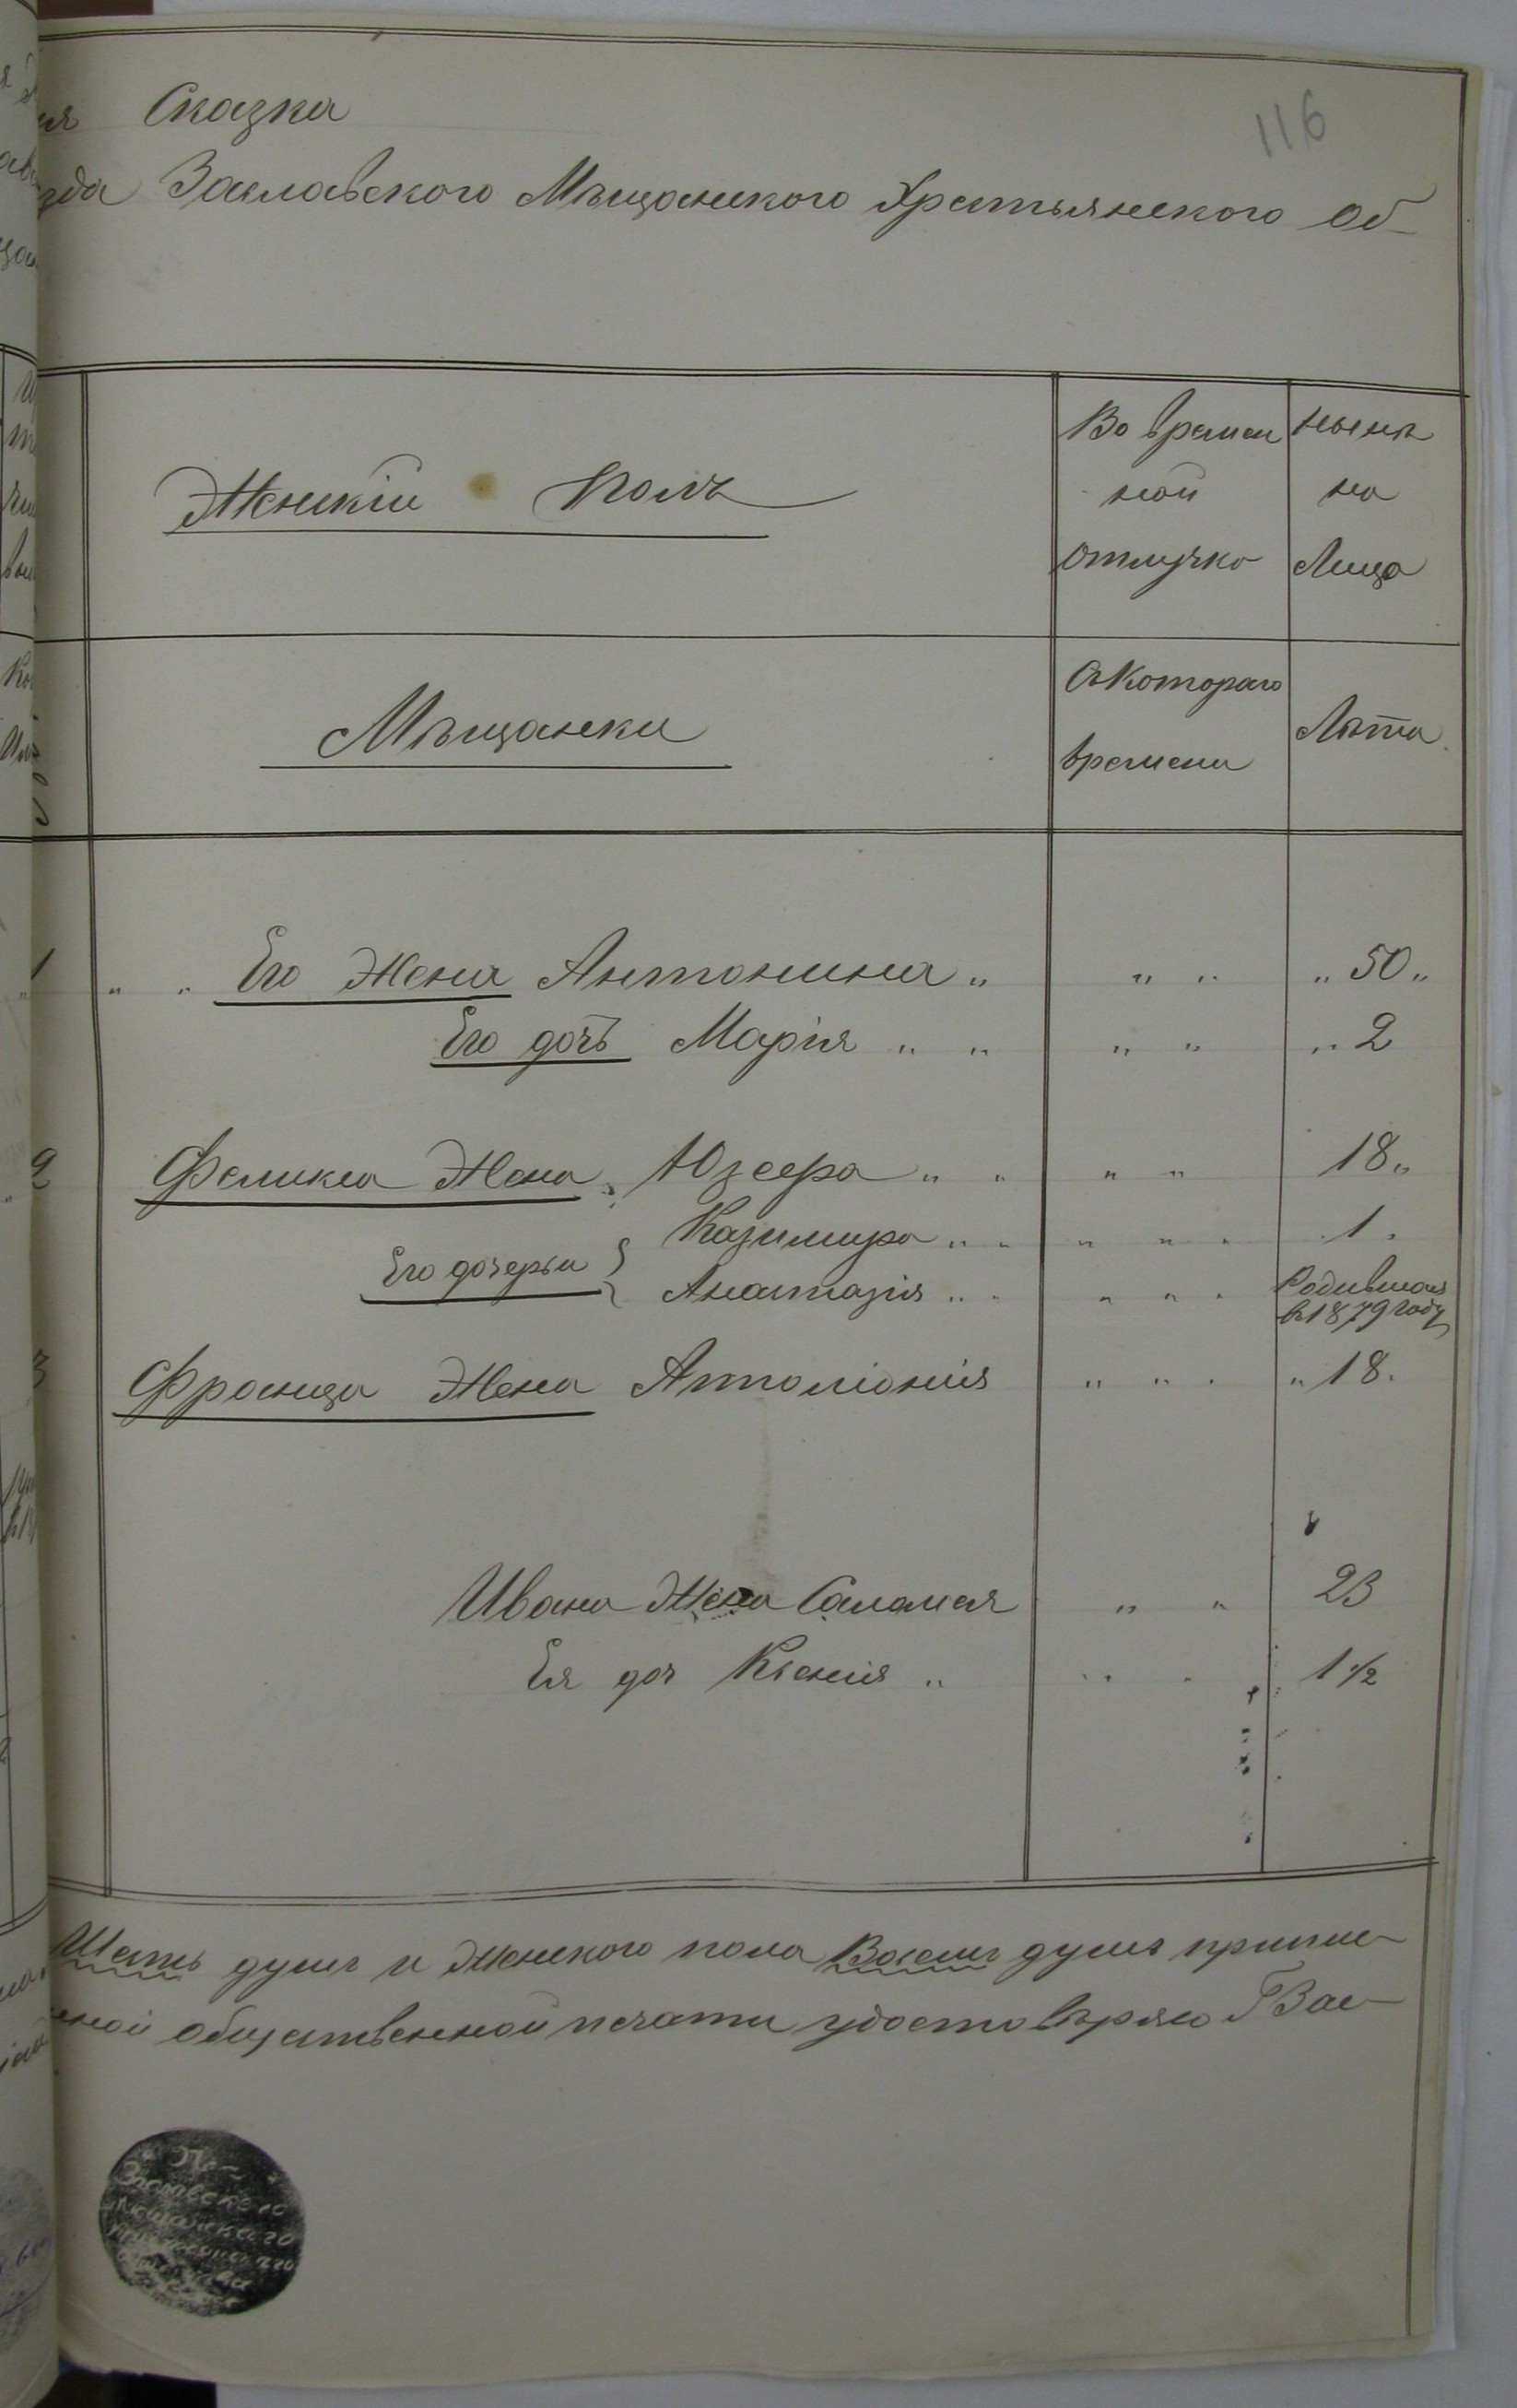 116
ия Сказка
зда Заславского Мѣщанского Хрестьянского об-
Женскій Полъ
Во времен
ной
отлучко
ныне
на
Лицо
Мѣщанки
Съ Котораго
времени
Лѣта
1 „ „ Его Жена Антонина „ „ „ „ 50 „
Его дочь Марія „ „ „ „ „ 2
2 Феликса Жена Юзефа „ „ „ „ 18 „
Его дочерьи { Казимира „ „ „ „ „ 1
Анастазія „ „ „ „ Родившая
въ 1879 году
3 Франца Жена Аполіонія „ „ „ 18.
Ивана Жена Саламея „ „ 23
Ея доч Ксенія „ „ „ 1 1/2
Шесть душъ и Женского пола Восемь душъ припис-
ной общественной печати удостовѣряю Г Зас-
Заславского
мещанского